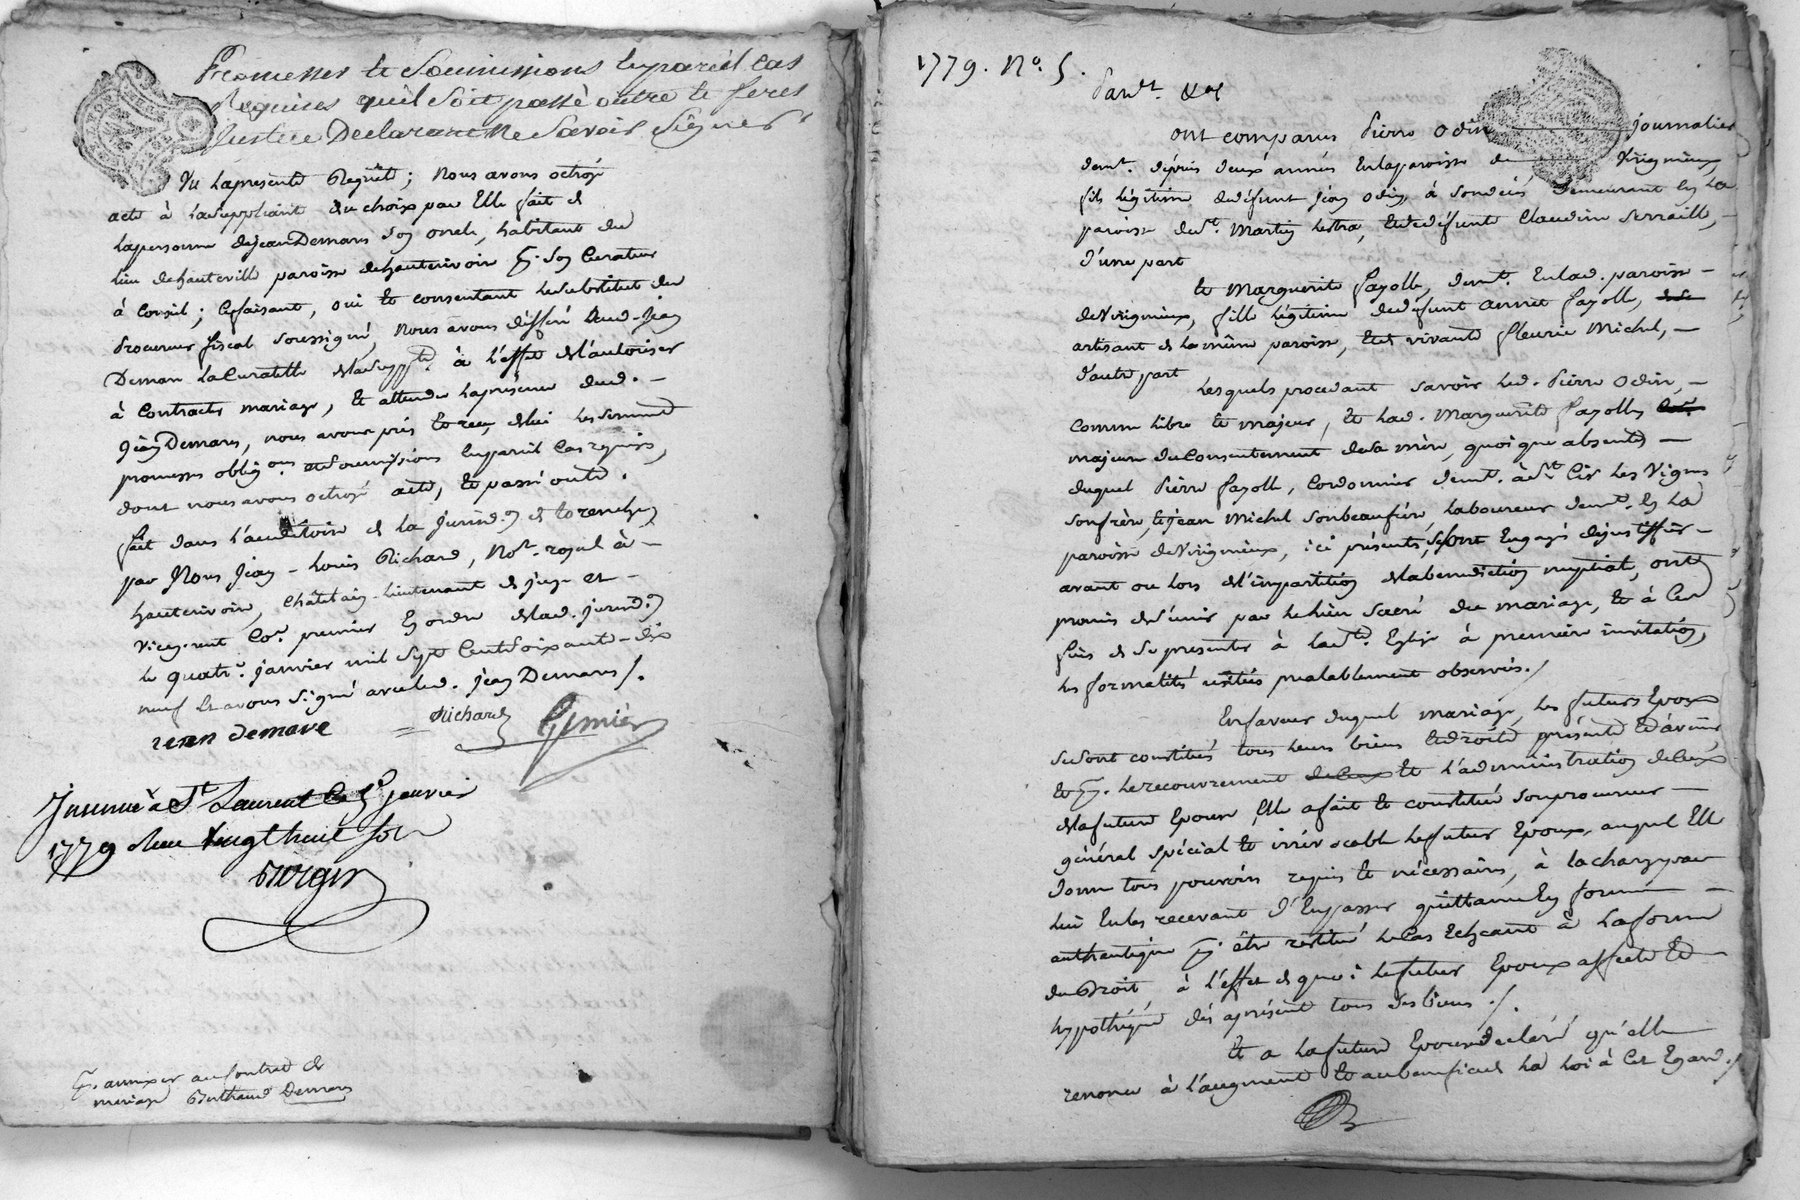 Promesses et Soumissions en pareil cas
Requises qu'il soit passé outre et feres
Justice Declarant Ne Savoir Signer
Vu la presente Requête; nous avons octroyé
acte à la Suppliante du choix par Elle fait de
la personne de jean Demare son oncle, habitant du
lieu de hauteville paroisse de hauterivoire pr. son Curateur
à Conseil; Ce faisant, oui et consentant le Substitut du
Procureur fiscal soussigné, nous avons déféré aud. Jean
Demare la Curatelle de la Suppte. à l'effet de l'autoriser
à Contracter mariage, et attendu la présence dud.
Jean Demare, nous avons pris et reçu de lui les serment
promesses obligons. et Soumissions en pareil cas requises,
dont nous avons octroyé acte, et passé outre.
fait dans l'auditoire de la jurisd.on de
par Nous Jean-Louis Richard, Nore. royal à
hauterivoire, Châtelain Lieutenant de juge et
premier en ordre de lad. jurisd.on
le quatre. janvier mil sept Cent soixante-dix
neuf et avons signé avec led. jean Demare /.
jean demare = Richard
à St. Laurent le 5e janvier
1779 vingt huit sols
pr. annexer au Contrat de
mariage Demare
1779. No. 5.
Pardt. &a
ont comparus Pierre Odin journalier
demt. dépuis deux années en la paroisse de Virigneux,
fils légitime de défunt jean Odin, à son décès demeurant en la
paroisse de St. Martin Lestra, et de défunte Claudine Serraille,
d'une part
et Marguerite fayolle, demte. en lad. paroisse
de Virigneux, fille légitime de défunt fayolle,
artisant de la même paroisse, et de vivante fleurie Michel,
d'autre part
Lesquels procedant savoir led. Pierre Odin,
comme libre et majeur, et lad. Marguerite fayolle
majeure du Consentement de sa mère, quoique absente
duquel Pierre fayolle, Cordonnier demt. à St. Cir les Vignes
son frère, et jean Michel son beaufrère, laboureur demt. en la
paroisse de Virigneux, ici présents, se sont engagés d'en justiffier
avant ou lors de l'impartition de la bénédiction nuptiale, ont
promis de s'unir par le lien sacré du mariage, et à Ces
fins de se presenter à la Ste. Eglise à première invitation,
les formalités usitées préalablement observées. /
En faveur duquel mariage, les futurs Epoux
se sont constitués tous leurs biens et droits présents et à venir
et pr. le recouvrement et l'administration de Ceux
de la future Epouse, Elle a fait et constitué son procureur
général spécial et irrévocable le futur Epoux, auquel Elle
donne tous pouvoirs requis et nécessaires, à la charge par
lui en les recevant d'en passer quittance en forme
authentique pr. être restitué le Cas Echéant à la forme
du Droit, à l'effet de quoi le futur Epoux affecte et
hypothèque dès à présent tous ses biens. /.
et a la future Epouse déclaré qu'elle
renonce à l'augment et au benefice de la loi à Cet Egard. /